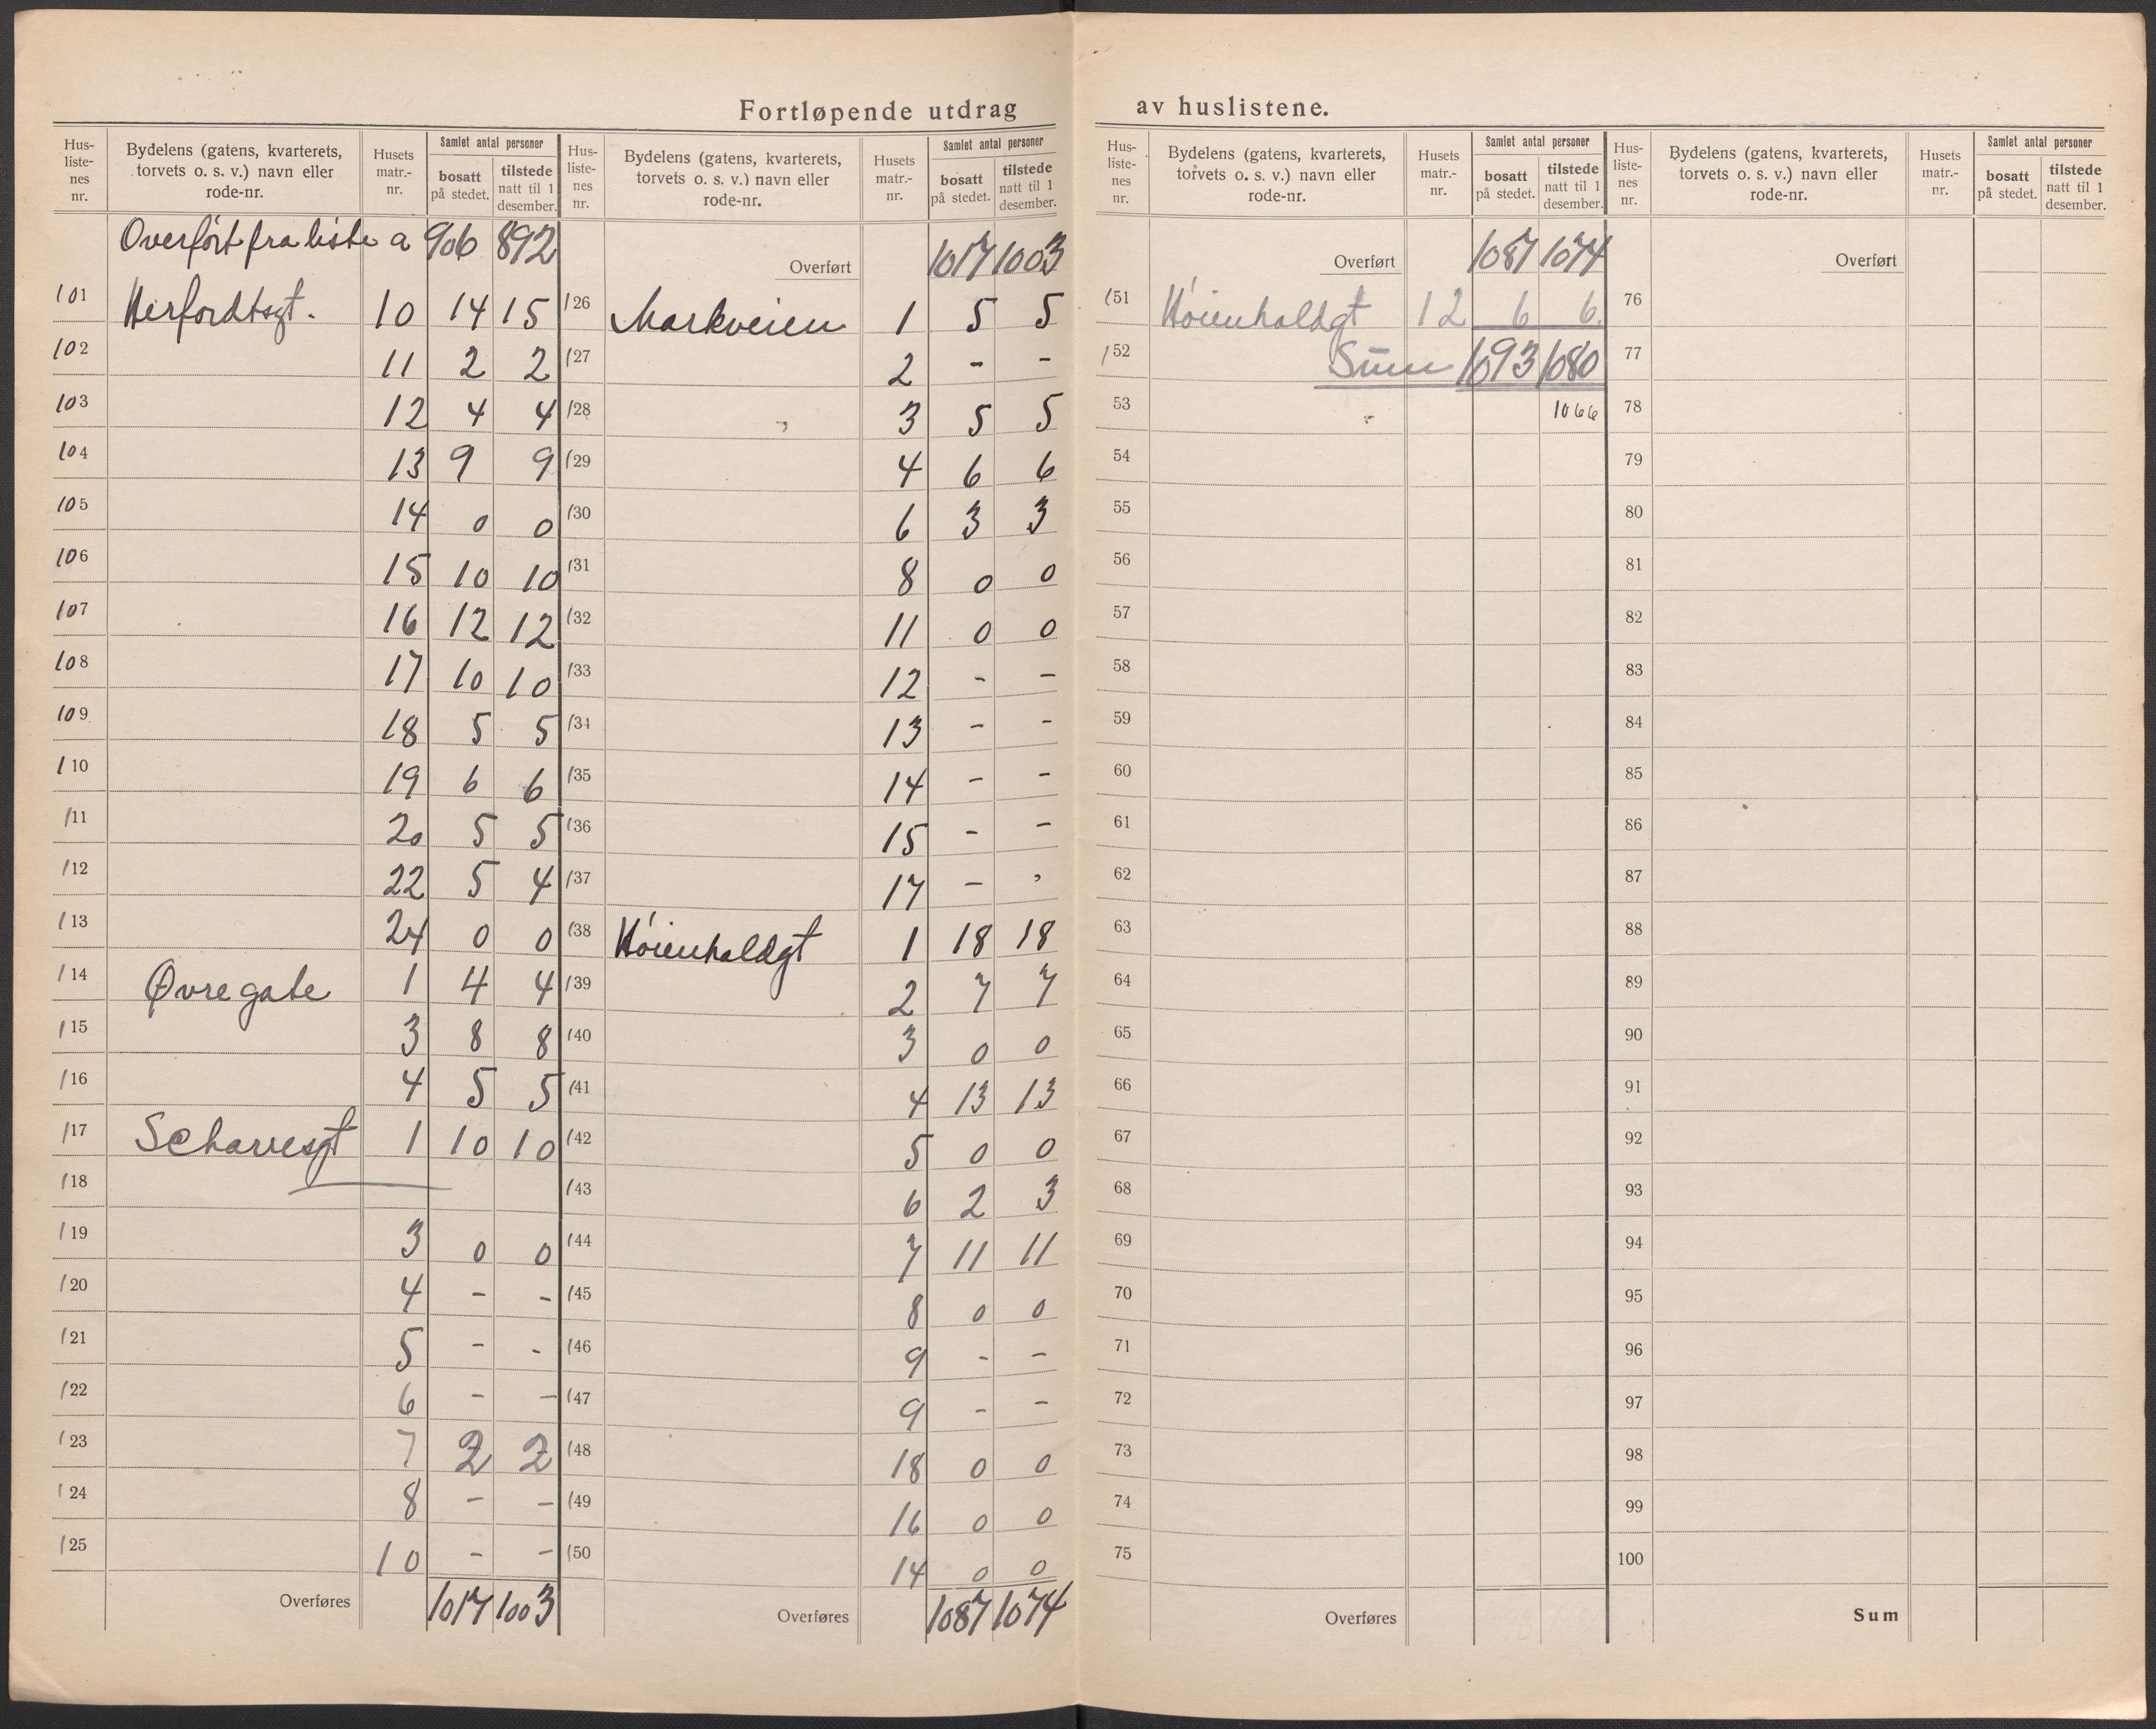 Fortløpende utdrag av huslistene.
Hus-liste-nes nr. | Bydelens (gatens, kvarterets, torvets o. s. v.) navn eller rode-nr. | Husets matr.-nr. | Samlet antal personer bosatt på stedet. | tilstede natt til 1 desember.
Overført fra liste a 906 892
101 Herfordtsgt. 10 14 15
102 11 2 2
103 12 4 4
104 13 9 9
105 14 0 0
106 15 10 10
107 16 12 12
108 17 10 10
109 18 5 5
110 19 6 6
111 20 5 5
112 22 5 4
113 24 0 0
114 Øvregate 1 4 4
115 3 8 8
116 4 5 5
117 1 10 10
118
119 3 0 0
120 4 - -
121 5 - -
122 6 - -
123 7 2 2
124 8 - -
125 10 - -
Overføres 1017 1003
Hus-liste-nes nr. | Bydelens (gatens, kvarterets, torvets o. s. v.) navn eller rode-nr. | Husets matr.-nr. | Samlet antal personer bosatt på stedet. | tilstede natt til 1 desember.
Overført 1017 1003
126 Markveien 1 5 5
127 2 - -
128 3 5 5
129 4 6 6
130 6 3 3
131 8 0 0
132 11 0 0
133 12 - -
134 13 - -
135 14 - -
136 15 - -
137 17 - -
138 Høienhaldgt 1 18 18
139 2 7 7
140 3 0 0
141 4 13 13
142 5 0 0
143 6 2 3
144 7 11 11
145 8 0 0
146 9 - -
147 9 - -
148 18 0 0
149 16 0 0
150 14 0 0
Overføres 1087 1074
Hus-liste-nes nr. | Bydelens (gatens, kvarterets, torvets o. s. v.) navn eller rode-nr. | Husets matr.-nr. | Samlet antal personer bosatt på stedet. | tilstede natt til 1 desember.
Overført 1087 1074
151 Høienhaldgt 12 6 6.
152 Sum 1693 1080
53 1066
54
55
56
57
58
59
60
61
62
63
64
65
66
67
68
69
70
71
72
73
74
75
Overføres
Hus-liste-nes nr. | Bydelens (gatens, kvarterets, torvets o. s. v.) navn eller rode-nr. | Husets matr.-nr. | Samlet antal personer bosatt på stedet. | tilstede natt til 1 desember.
Overført
76
77
78
79
80
81
82
83
84
85
86
87
88
89
90
91
92
93
94
95
96
97
98
99
100
Sum